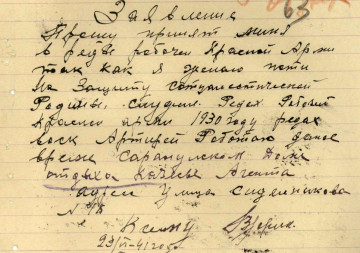 63
Заявление
Прошу принят меня
в ряды рабочей Красной Арми
так как я желаю пойти
На Защиту социалистической
Родины, служил. Рабочей
Красной 1930 году рядах
воск Артирей Работаю даное
время Сарапулском Доме
отдыха Агента
адрес Улица сиделникова
N
К сему
23/VI-41 года